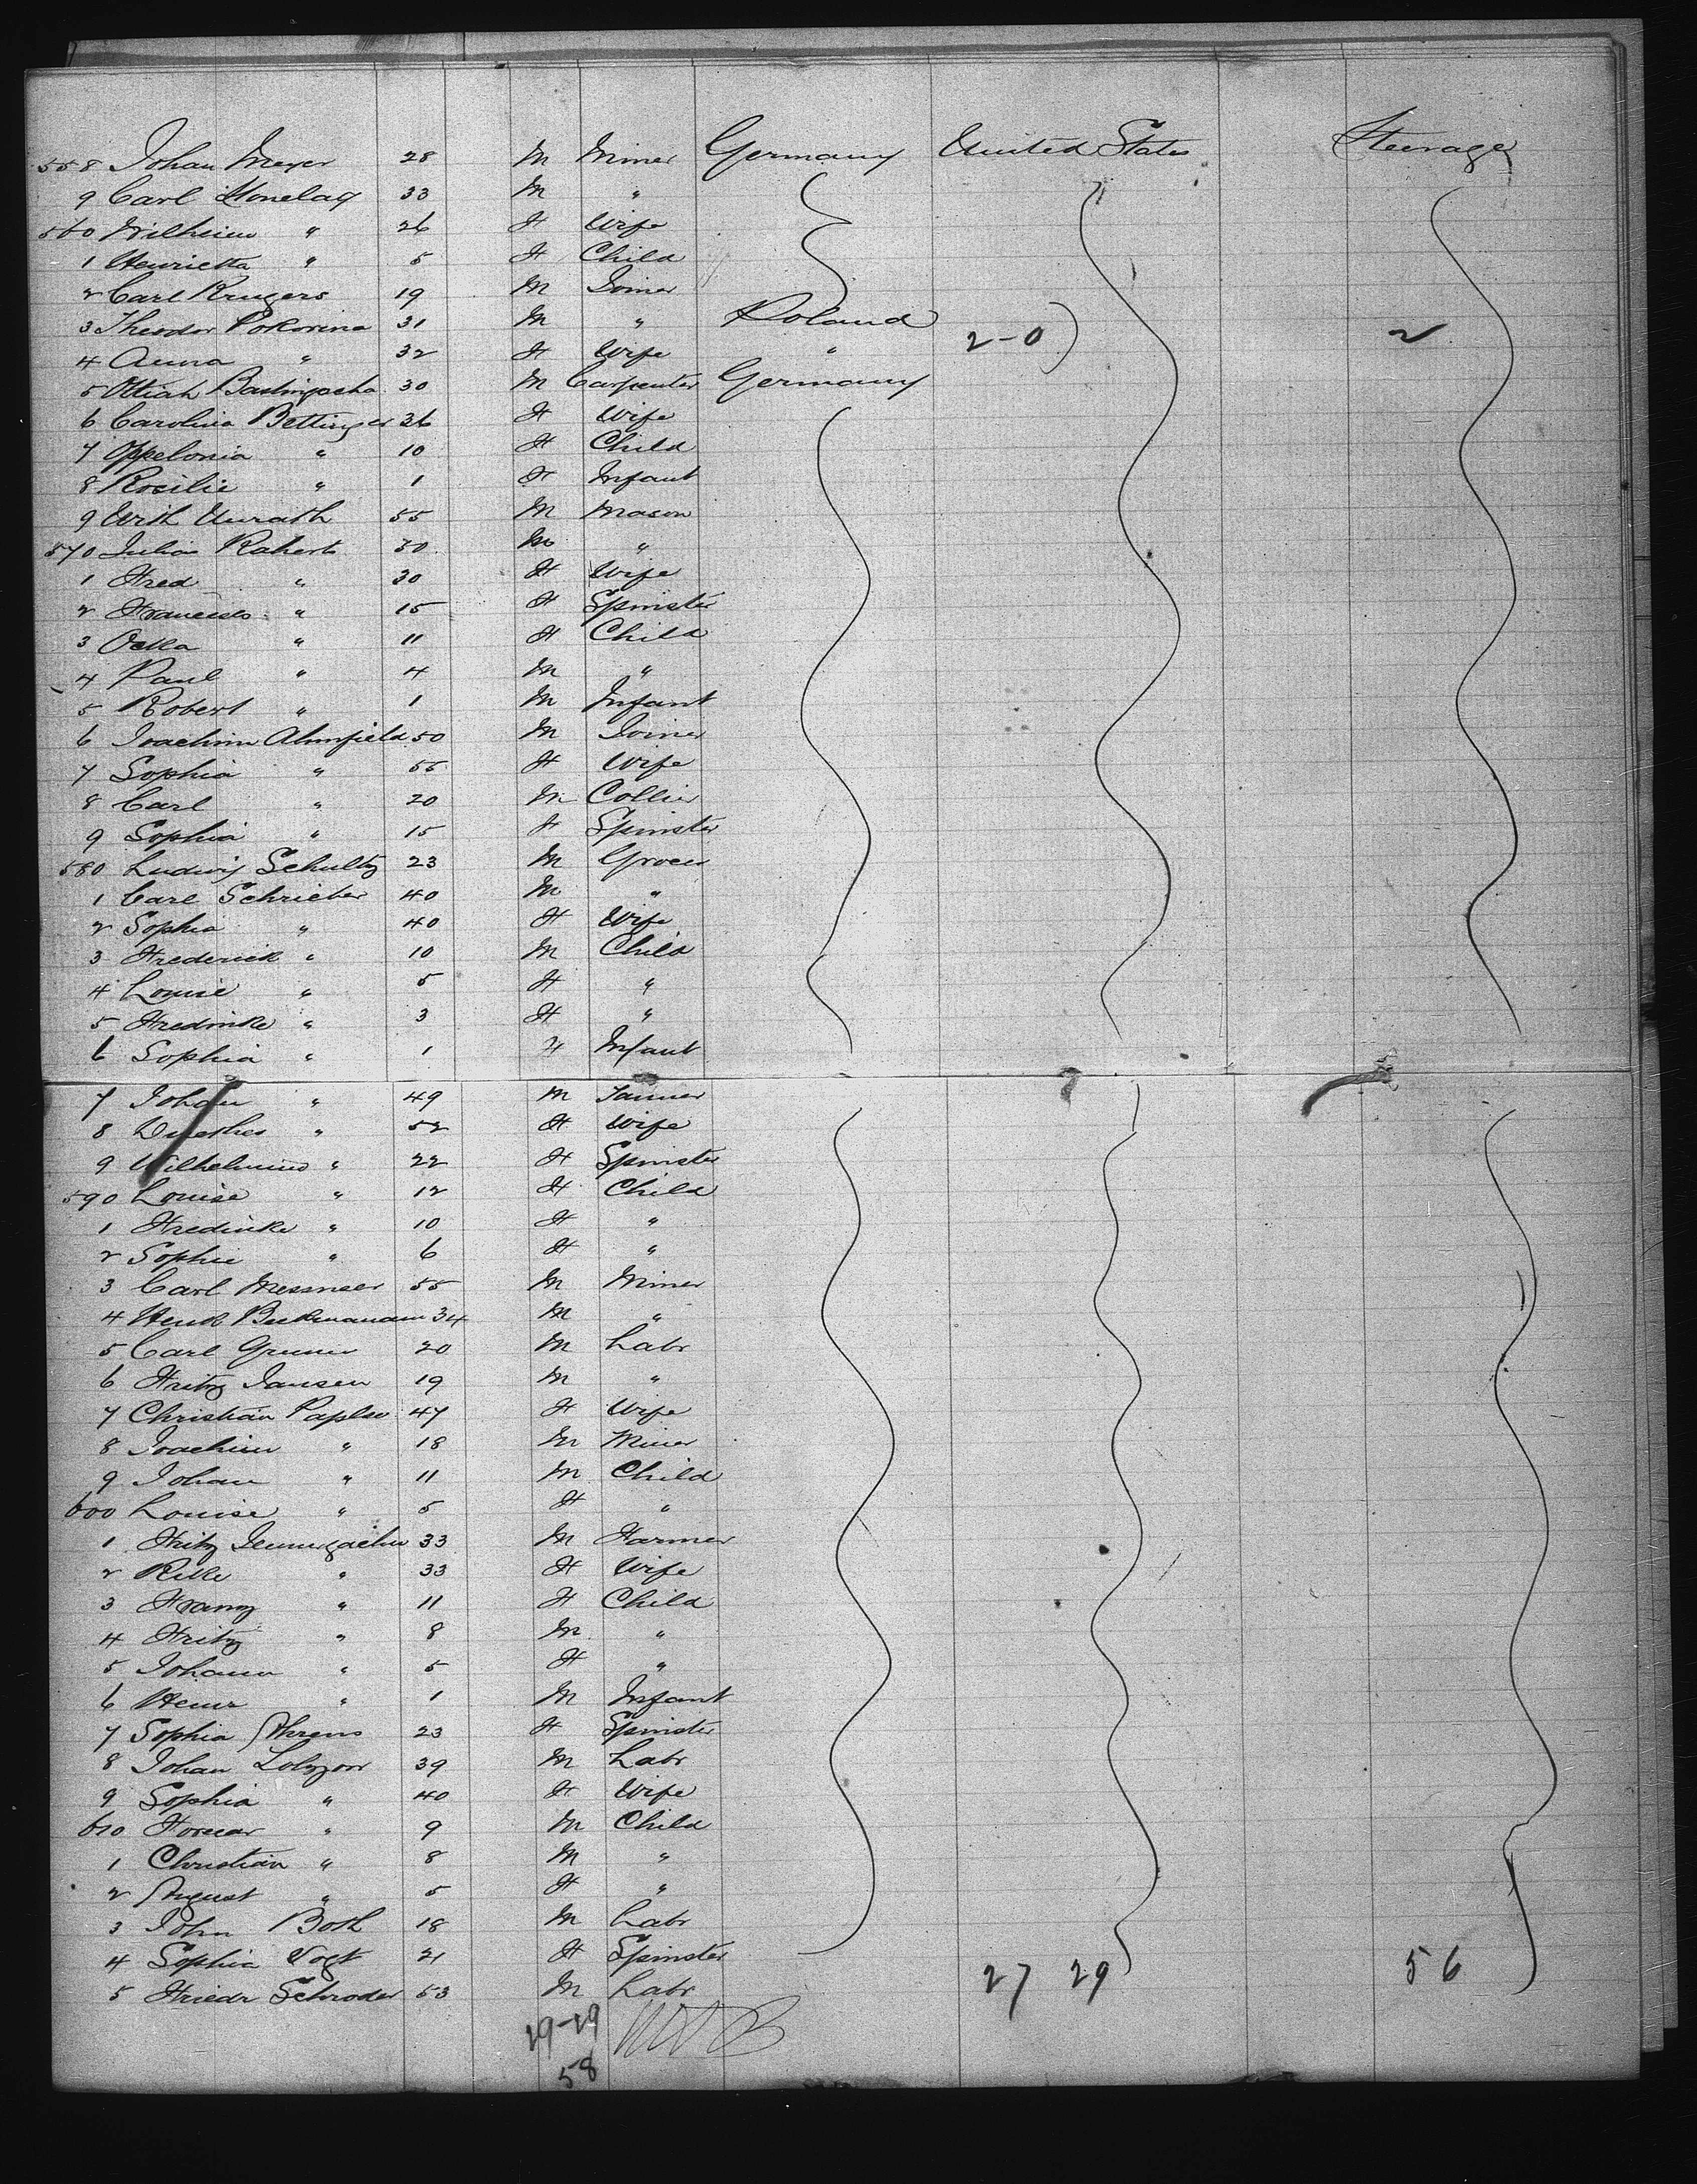 558 Johan Meyer 28 M Miner Germany United States Steerage
9 Carl 33 M "
560 Wilhium " 26 F Wife
1 Henrietta " 5 F Child
2 Carl Krugers 19 M Joiner
3 Theodor Pokorina 31 M " Poland
4 Anna " 32 F Wife " 2-0) 2
5 30 M Carpenter Germany
6 Carolina Bettinger 26 F Wife
7 Appelonia " 10 F Child
8 Rosilie " 1 F Infant
9 Unrath 55 M Mason
570 Julius Rahert 30 M "
1 Fred " 30 F Wife
2 " 15 F Spinster
3 " 11 F Child
4 Paul " 4 M "
5 Robert " 1 M Infant
6 Joachim Ahnfield 50 M Joiner
7 Sophia " 55 F Wife
8 Carl " 20 M Collier
9 Sophia " 15 F Spinster
580 Ludwig Schultz 23 M Grocer
1 Carl Schrieber 40 M "
2 Sophia " 40 F Wife
3 Frederick " 10 M Child
4 Louise " 5 F "
5 Fredrike " 3 F "
6 Sophia " 1 F Infant
7 Johan " 49 M Tanner
8 " 52 F Wife
9 Wilhelmine " 22 F Spinster
590 Louise " 12 F Child
1 Fredrike " 10 F "
2 Sophie " 6 F "
3 Carl 55 M Miner
4 34 M "
5 Carl 20 M Labr
6 Fritz Jansen 19 M "
7 Christian Paplow 47 F Wife
8 Joachim " 18 M Miner
9 Johan " 11 M Child
600 Louise " 5 F "
1 Fritz 33 M Farmer
2 Rike " 33 F Wife
3 Franz " 11 F Child
4 Fritz " 8 M "
5 Johann " 5 F "
6 " 1 M Infant
7 Sophia Ahrens 23 F Spinster
8 Johan 39 M Labr
9 Sophia " 40 F Wife
610 " 9 M Child
1 Christian " 8 M "
2 August " 5 F "
3 John Both 18 M Labr
4 Sophia Vogt 21 F Spinster
5 Friedr Schroder 53 M Labr 27 29 56
29-29
58